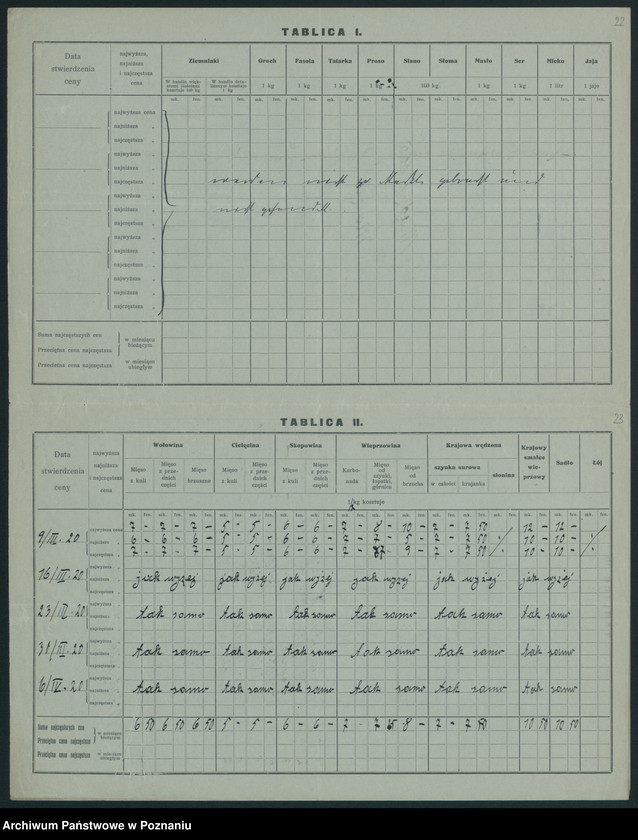 22
TABLICA I.
Data stwierdzenia ceny
najwyższa, najniższa i najczęstsza cena
Ziemniaki Groch Fasola Tatarka Proso Siano Słoma Masło Ser Mleko Jaja
1 kg 1 kg 1 kg 1 kg 100 kg 1 kg 1 kg 1 litr 1 jaje
najwyższa cena
najniższa „
najczęstsza „
najwyższa „
najniższa „
najczęstsza „
najwyższa „
najniższa „
najczęstsza „
najwyższa „
najniższa „
najczęstsza „
najwyższa „
najniższa „
najczęstsza „
werden nicht zu Markt gebracht und
Suma najczęstszych cen
Przeciętna cena najczęstsza
w miesiącu bieżącym
Przeciętna cena najczęstsza
w miesiącu ubiegłym
23
TABLICA II.
Data stwierdzenia ceny
najwyższa najniższa i najczęstsza cena
Wołowina Cielęcina Skopowina Wieprzowina Krajowa wędzona Krajowy smalec wieprzowy Sadło Łój
Mięso z kuli
Mięso z przednich części
Mięso brzuszne
Mięso z kuli
Mięso z przednich części
Mięso z kuli
Mięso z przednich części
Karbonada
Mięso od szynki, łopatki, górnica
Mięso od brzucha
szynka surowa
w całości krajanka
słonina
1 kg kosztuje
9/III.20
najwyższa cena 7 - 7 - 7 - 5 - 5 - 6 - 6 - 7 - 8 - 10 - 7 - 7 50 12 - 12 -
najniższa „ 6 - 6 - 6 - 5 - 5 - 6 - 6 - 7 - 7 - 5 - 7 - 7 50 10 - 10 -
najczęstsza „ 7 - 7 - 7 - 5 - 5 - 6 - 6 - 7 - 9 - 7 - 7 50 10 - 10 -
16/III.20 jak wyżej jak wyżej jak wyżej jak wyżej jak wyżej jak wyżej
23/III.20 tak samo tak samo tak samo tak samo tak samo tak samo
31/III.20 tak samo tak samo tak samo tak samo tak samo tak samo
6/IV.20 tak samo tak samo tak samo tak samo tak samo tak samo
Suma najczęstszych cen 6 50 6 50 6 50 5 - 5 - 6 - 6 - 7 - 7 8 - 7 - 7 50 10 50 10 50
Przeciętna cena najczęstsza
w miesiącu bieżącym
Przeciętna cena najczęstsza
w miesiącu ubiegłym
Archiwum Państwowe w Poznaniu